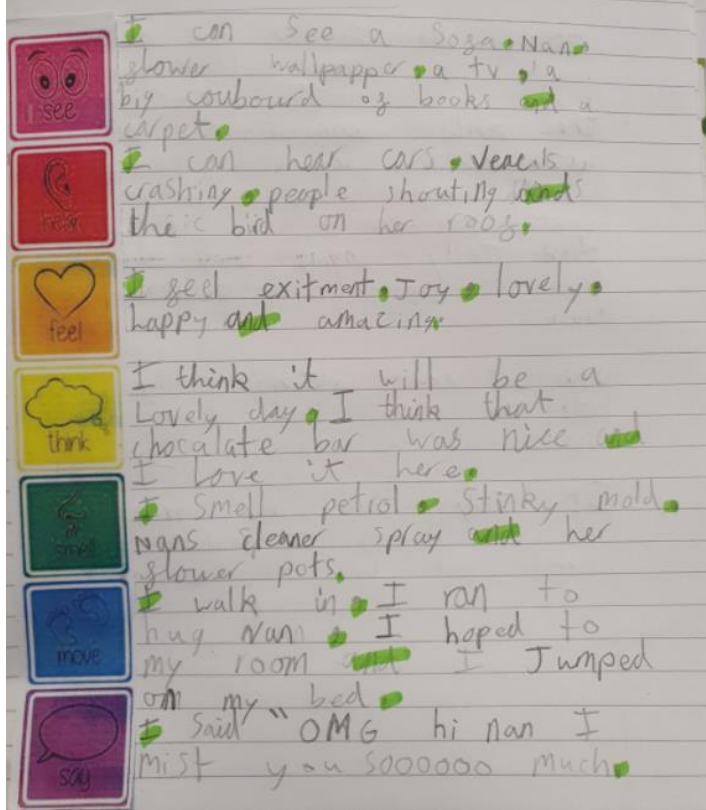 I can see a sofa, Nans
flower wallpapper, a tv, a
big coubourd of books and a
carpet.
I can hear cars, veacils
crashing, people shouting and
the bird on her roof.
I feel exitment, Joy, lovely,
happy and amazing.
I think it will be a
Lovely day, I think that
chocalate bar was nice and
I Love it here.
I smell petrol, Stinky mold,
Nans cleaner spray and her
flower pots.
I walk in, I ran to
hug Nan, I hoped to
my room and I Jumped
on my bed.
I said "OMG hi nan I
mist you soooooo much.
I see
hear
feel
think
smell
move
say